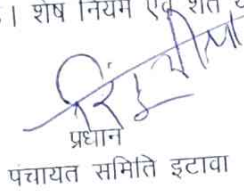 । शेष नियम एवं शर्ते
प्रधान
पंचायत समिति इटावा